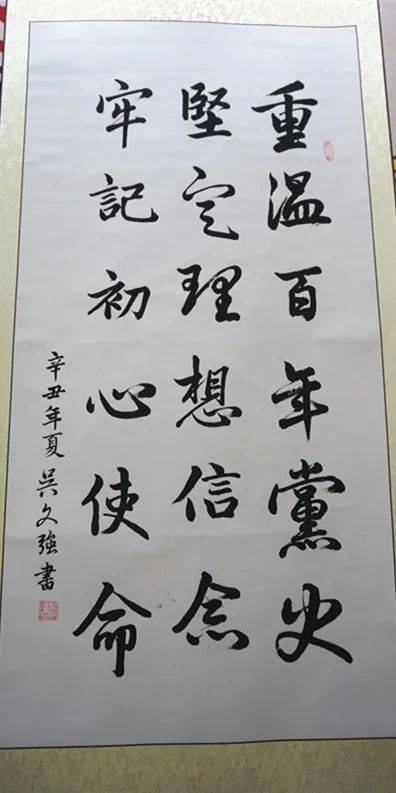 重温百年黨史
堅定理想信念
牢記初心使命
辛丑年夏 吴文強書